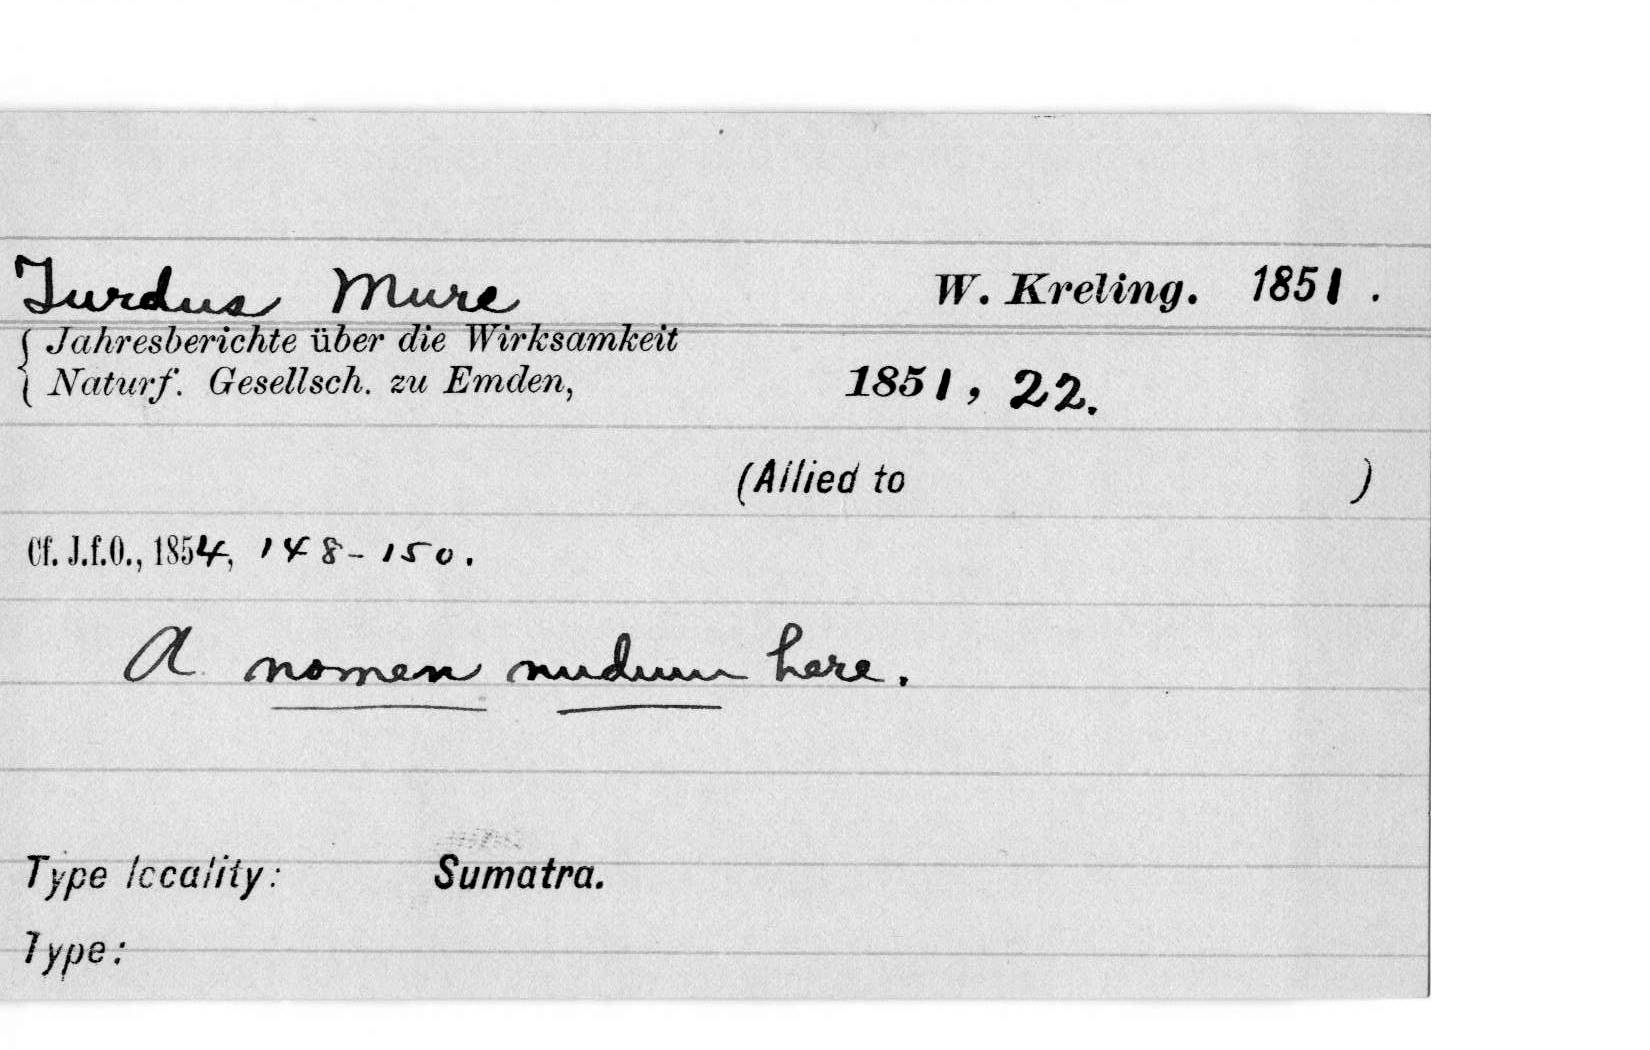 Turdus Mure W. Kreling. 1851.
{ Jahresberichte über die Wirksamkeit
Naturf. Gesellsch. zu Emden, 1851, 22.
(Allied to )
Cf. J.f.O., 1854, 148-150.
A nomen nudum here.
Type locality: Sumatra.
Type: